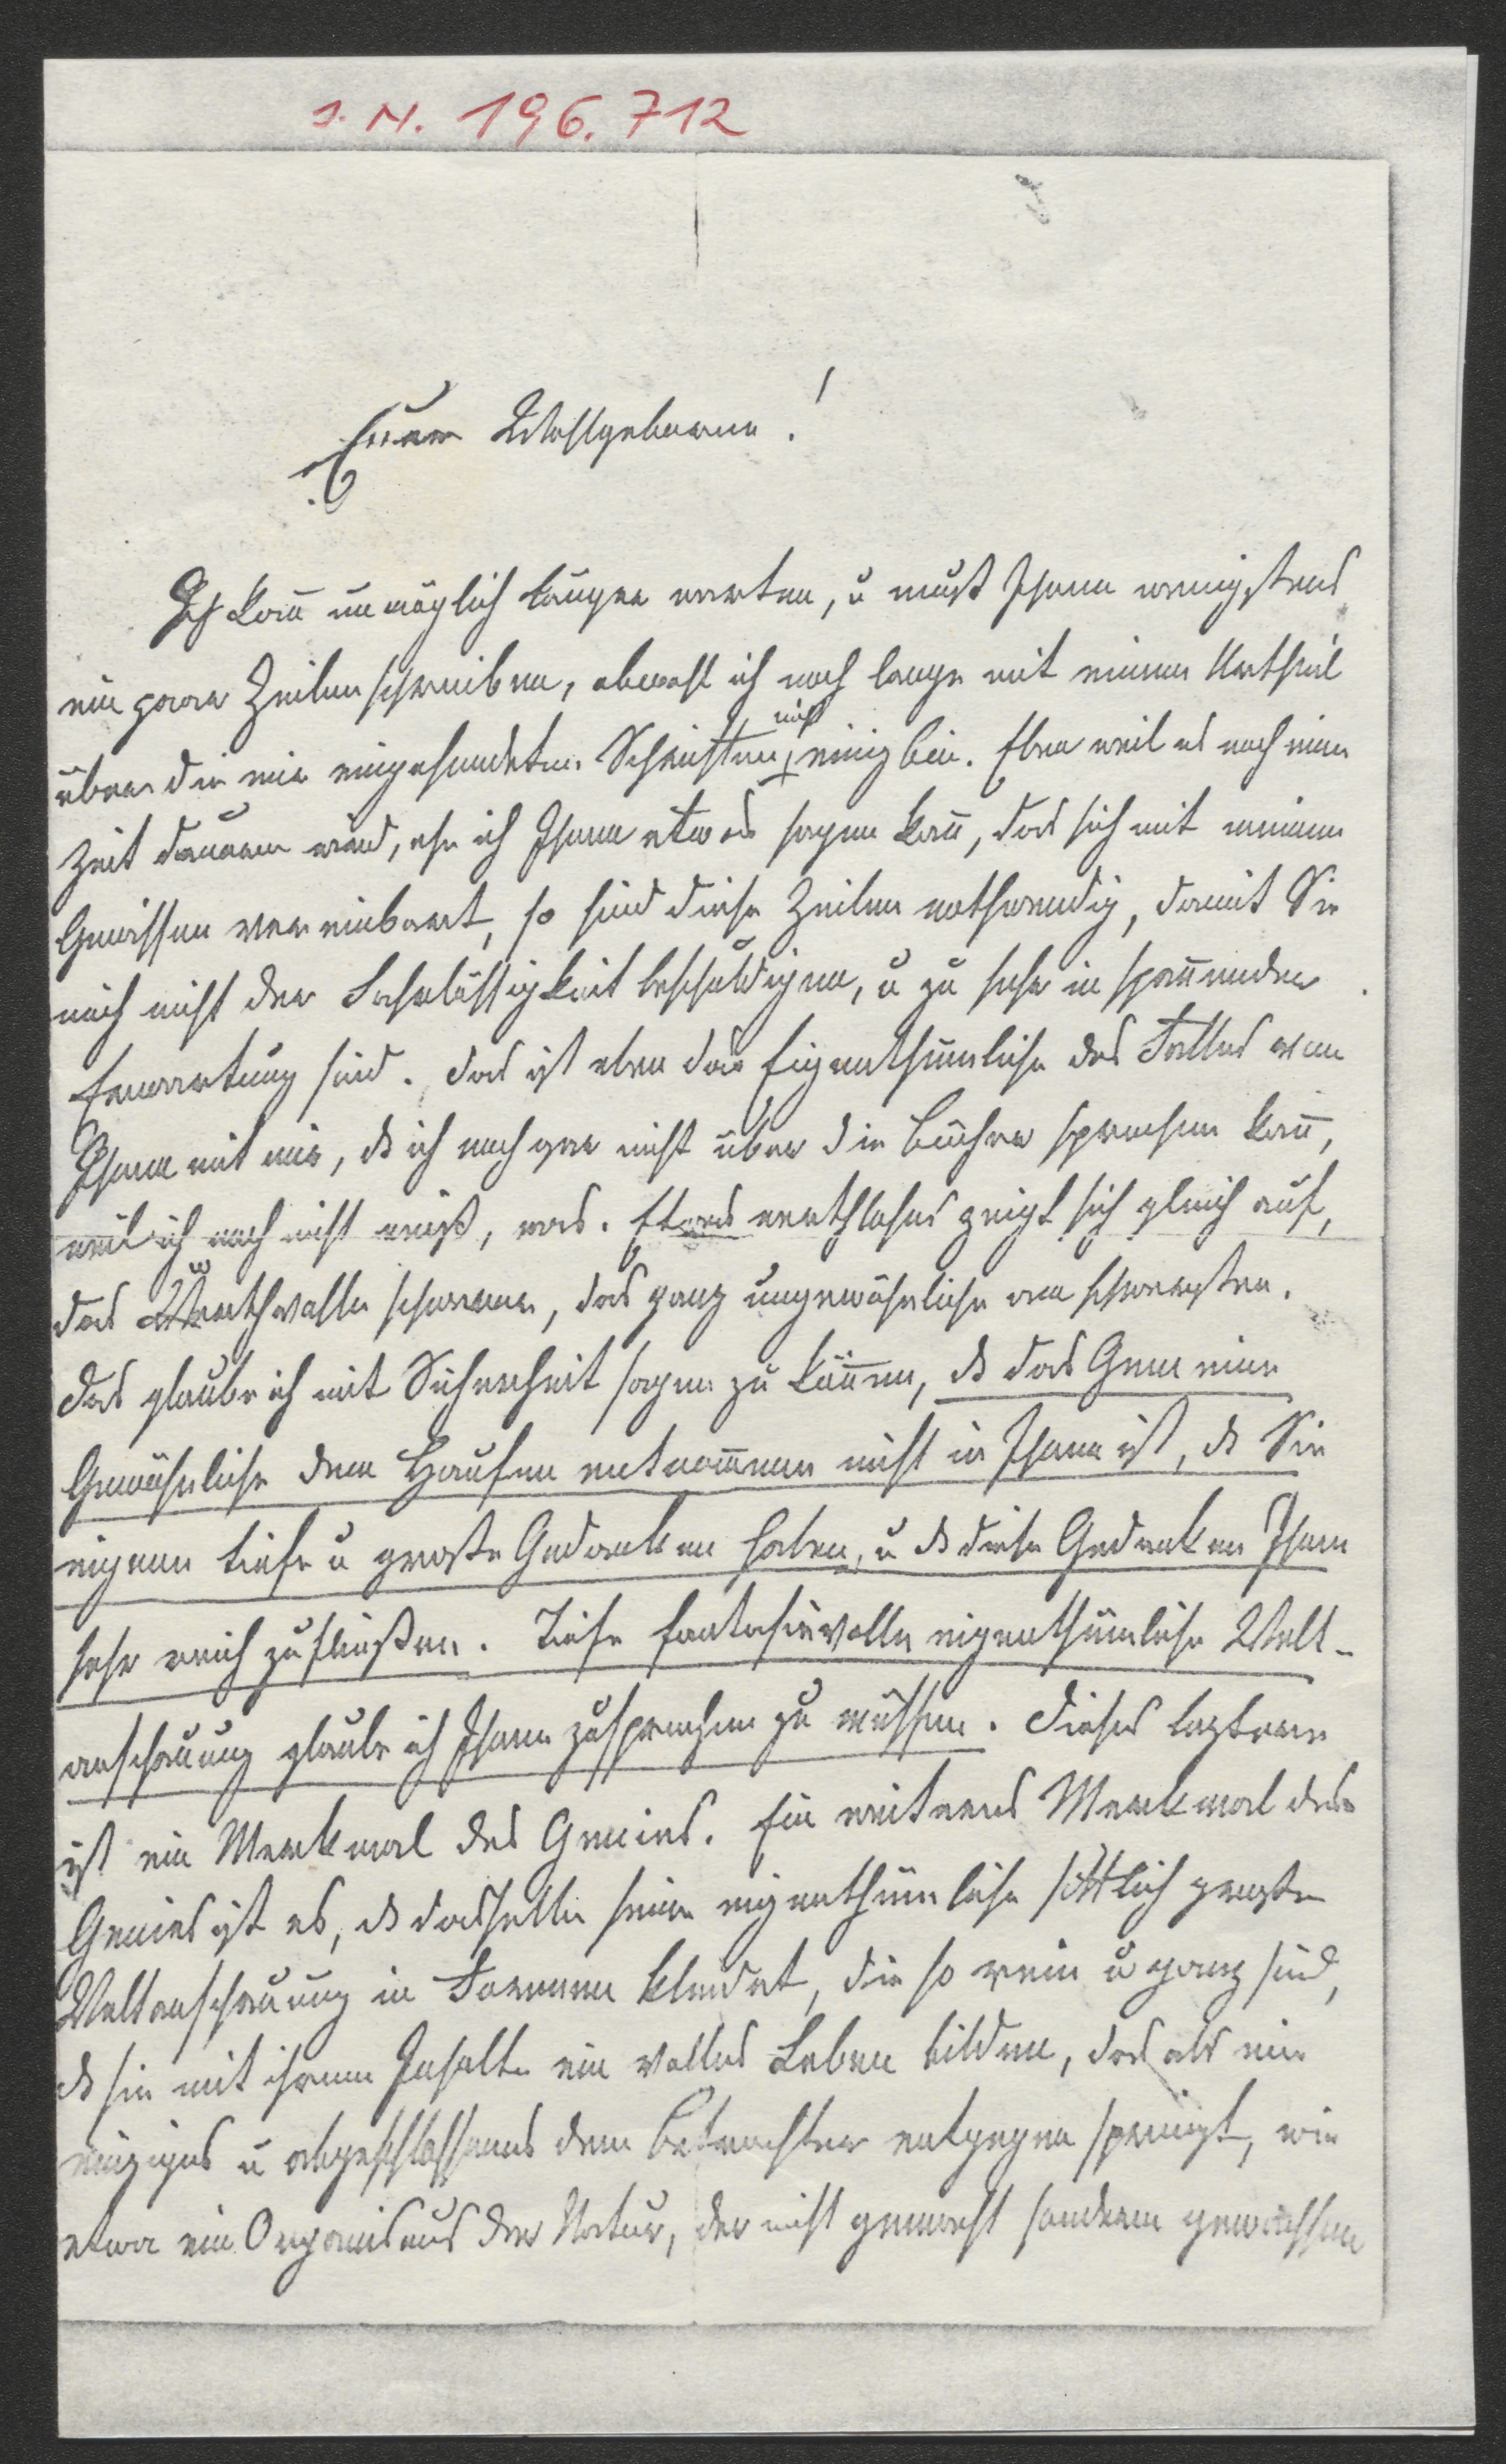 J. N. 196.712
Euer Wohlgeboren!
Ich kan̄ unmöglich länger warten, u muß Ihnen wenigstens
ein paar Zeilen schreiben, obwohl ich noch lange mit einem Urtheil
über die mir eingesendeten Schriften nicht einig bin. Eben weil es noch eine
Zeit dauern wird, ehe ich Ihnen etwas sagen kan̄, das sich mit meinem
Gewissen vereinbart, so sind diese Zeilen nothwendig, damit Sie
mich nicht der Fahrlässigkeit beschuldigen, u zu sehr in span̄ender
Erwartung sind. Das ist eben das Eigenthümliche des Falles von
Ihnen mit mir, dß ich noch gar nicht über die Bücher sprechen kan̄,
weil ich noch nicht weiß, was. Etwas werthloses zeigt sich gleich auf,
das Werthvolle schwerer, das ganz ungewöhnliche am schwersten.
Das glaube ich mit Sicherheit sagen zu kön̄en, dß das Gemeine
Gewöhnliche dem Haufen entnom̄ene nicht in Ihnen ist, dß Sie
eigene tiefe u große Gedanken haben, u dß diese Gedanken Ihnen
sehr reich zufließen. Tiefe fantasievolle eigenthümliche Welt-
anschauung glaube ich Ihnen zusprechen zu müssen. Dieses leztere
ist ein Merkmal des Genies. Ein weiteres Merkmal des
Genies ist es, dß dasselbe seine eigenthümliche sittlich große
Weltanschauung in Formen kleidet, die so rein u ganz sind,
dß sie mit ihrem Inhalte ein volles Leben bilden, das als ein
einziges u abgeschlossenes dem Betrachter entgegen springt, wie
etwa ein Organismus der Natur, der nicht gemacht sondern gewachsen